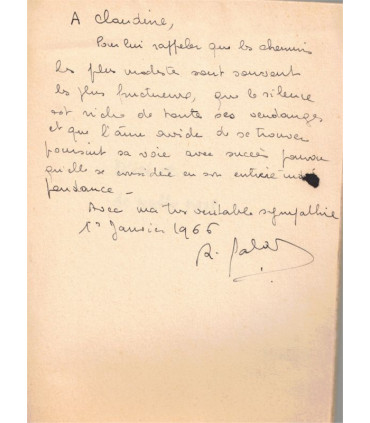 A Claudine,
Pour lui rappeler que les chemins
les plus modestes sont souvent
les plus fructueux, que le silence
est riche de toutes ses vendanges
et que l'âme avide de se trouver
poursuit sa voie avec succès pourvu
qu'elle se considère en son entière indé
pendance -
Avec ma très véritable sympathie
1er Janvier 1966
R.